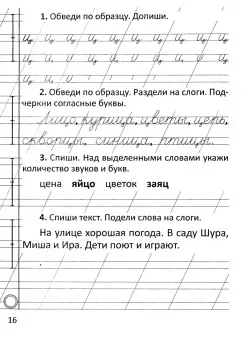 1. Обведи по образцу. Допиши.
ц ц ц ц ц ц ц ц ц ц
ц ц ц ц ц ц ц ц ц ц
2. Обведи по образцу. Раздели на слоги. Под-
черкни согласные буквы.
Лицо, курица, цветы, цепь,
скворцы, синица, птицы.
3. Спиши. Над выделенными словами укажи
количество звуков и букв.
цена яйцо цветок заяц
4. Спиши текст. Подели слова на слоги.
На улице хорошая погода. В саду Шура,
Миша и Ира. Дети поют и играют.
16